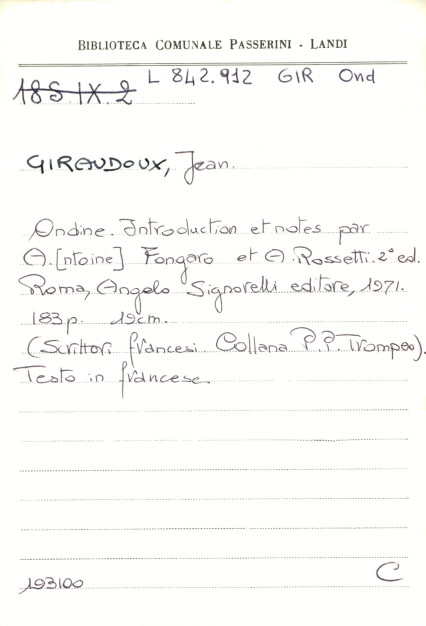 BIBLIOTECA COMUNALE PASSERINI - LANDI
L 842.912 GIR Ond
185.IX.2
GIRAUDOUX, Jean.
Ondine. Introduction et notes par
A.[ntoine] Fongaro et A. Rossetti. 2° ed.
Roma, Angelo Signorelli editore, 1971.
183 p. 19cm.
(Scrittori francesi Collana P.P. Trompeo).
Testo in francese.
193100 C